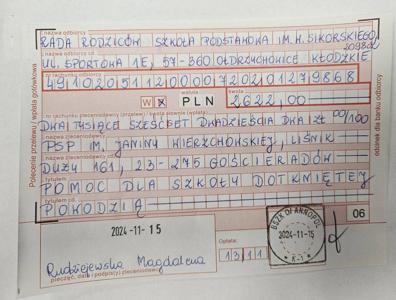 nazwa odbiorcy
RADA RODZICÓW SZKOŁA PODSTAWOWA IM. H. SIKORSKIEGO
nazwa odbiorcy cd.
UL. SPORTOWA 1E, 57-360 OŁDRZYCHOWICE KŁODZKIE
nr rachunku odbiorcy
49102051120000720201279868
W P
waluta
PLN
kwota
2622,00
DWA TYSIĄCE SZEŚĆSET DWADZIEŚCIA DWA ZŁ 00/100
nazwa zleceniodawcy
PSP IM. JANINY WIERZCHOWSKIEJ, LIŚNIK
nazwa zleceniodawcy cd.
DUŻY 161, 23-275 GOŚCIERADÓW
tytułem
POMOC DLA SZKOŁY DOTKNIĘTEJ
tytułem cd.
POWODZIĄ
06
2024-11-15
Opłata:
2024-11-15
K-1
Rudziejewska Magdalena
pieczęć, data i podpis(y) zleceniodawcy
Polecenie przelewu / wpłata gotówkowa
odcinek dla banku odbiorcy